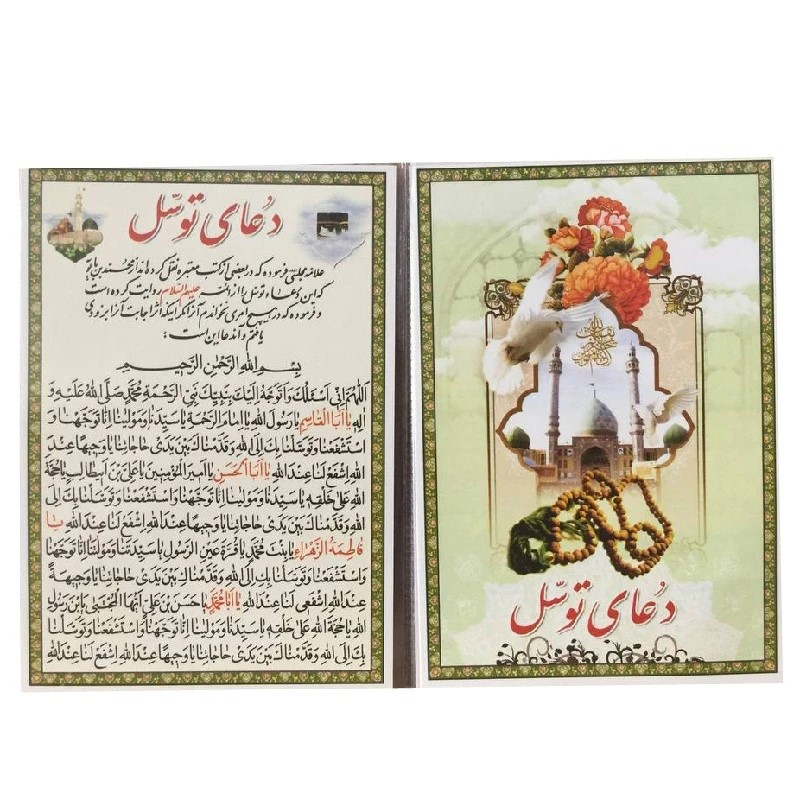 دعای توسل
علامه مجلسی فرموده که در بعضی از کتب معتبره نقل کرده اند از محمد بن بابویه
که این دعاء توسل را از ائمه علیهم السلام روایت کرده است
و فرموده که در هیچ امری نخواندم آنرا مگر اینکه اثر اجابت آنرا بزودی
یافتم و آندعا این است:
بِسْمِ اللهِ الرَّحْمٰنِ الرَّحِیمِ
اَللّٰهُمَّ اِنّی اَسْئَلُكَ وَ اَتَوَجَّهُ اِلَیْكَ بِنَبِیِّكَ نَبِیِّ الرَّحْمَةِ مُحَمَّدٍ صَلَّی اللهُ عَلَیْهِ وَ
الِهِ یا اَبَا الْقاسِمِ یا رَسُولَ اللهِ یا اِمامَ الرَّحْمَةِ یا سَیِّدَنا وَ مَوْلینا اِنّا تَوَجَّهْنا وَ
اسْتَشْفَعْنا وَ تَوَسَّلْنا بِكَ اِلَی اللهِ وَ قَدَّمْناكَ بَیْنَ یَدَیْ حاجاتِنا یا وَجیهاً عِنْدَ
اللهِ اِشْفَعْ لَنا عِنْدَ اللهِ یا اَبَا الْحَسَنِ یا اَمیرَ الْمُؤْمِنینَ یا عَلِیَّ بْنَ اَبیطالِبٍ یا حُجَّةَ
اللهِ عَلی خَلْقِهِ یا سَیِّدَنا وَ مَوْلینا اِنّا تَوَجَّهْنا وَ اسْتَشْفَعْنا وَ تَوَسَّلْنا بِكَ اِلَی
اللهِ وَ قَدَّمْناكَ بَیْنَ یَدَیْ حاجاتِنا یا وَجیهاً عِنْدَ اللهِ اِشْفَعْ لَنا عِنْدَ اللهِ یا
فاطِمَةُ الزَّهْراءُ یا بِنْتَ مُحَمَّدٍ یا قُرَّةَ عَیْنِ الرَّسُولِ یا سَیِّدَتَنا وَ مَوْلاتَنا اِنّا تَوَجَّهْنا
وَ اسْتَشْفَعْنا وَ تَوَسَّلْنا بِكِ اِلَی اللهِ وَ قَدَّمْناكِ بَیْنَ یَدَیْ حاجاتِنا یا وَجیهَةً
عِنْدَ اللهِ اِشْفَعی لَنا عِنْدَ اللهِ یا اَبا مُحَمَّدٍ یا حَسَنَ بْنَ عَلِیٍّ اَیُّهَا الْمُجْتَبی یَا بْنَ رَسُولِ
اللهِ یا حُجَّةَ اللهِ عَلی خَلْقِهِ یا سَیِّدَنا وَ مَوْلینا اِنّا تَوَجَّهْنا وَ اسْتَشْفَعْنا وَ تَوَسَّلْنا
بِكَ اِلَی اللهِ وَ قَدَّمْناكَ بَیْنَ یَدَیْ حاجاتِنا یا وَجیهاً عِنْدَ اللهِ اِشْفَعْ لَنا عِنْدَ اللهِ
دعای توسل